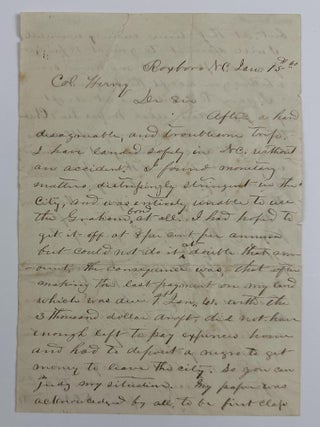 Roxboro NC Jan 15th
Col. Henry
Dr Sir
After a hard
disagreable, and troublesom trip,
I have landed safely in NC, without
an accident, I found monetary
matters, distressingly stringent in the
City, and was entirely unable to use
the Graham bond at all. I had hoped to
get it off at 8 per cent per annum
but could not do it at double that am-
ount, the consequence was, that after
making the last payment on my land
which was due 1st Jan, with the
3 thousand dollar draft, did not have
enough left to pay expenses home
and had to deposit a negro to get
money to leave the city. So you can
judg my situation. My paper was
acknowledged by all, to be first class